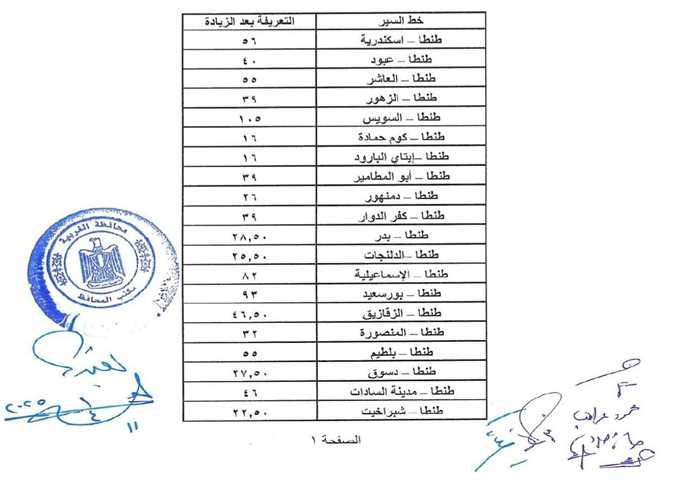 خط السير التعريفة بعد الزيادة
طنطا – اسكندرية ٥٦
طنطا – عبود ٤٠
طنطا – العاشر ٥٥
طنطا – الزهور ٣٩
طنطا – السويس ١٠٥
طنطا – كوم حمادة ١٦
طنطا – إيتاي البارود ١٦
طنطا – أبو المطامير ٣٩
طنطا – دمنهور ٢٦
طنطا – كفر الدوار ٣٩
طنطا – بدر ٢٨,٥٠
طنطا – الدلنجات ٢٥,٥٠
طنطا – الإسماعيلية ٨٢
طنطا – بورسعيد ٩٣
طنطا – الزقازيق ٤٦,٥٠
طنطا – المنصورة ٣٢
طنطا – بلطيم ٥٥
طنطا – دسوق ٢٧,٥٠
طنطا – مدينة السادات ٤٦
طنطا – شبراخيت ٢٢,٥٠
الصفحة ١
محافظة الغربية
مكتب المحافظ
٢٠٢٥
٤
١١